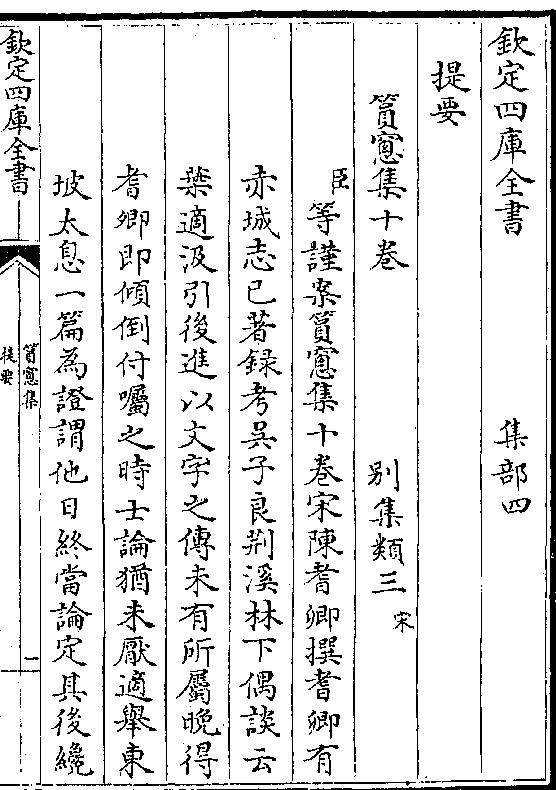 欽定四庫全書　集部四
提要
篔窗集十卷　別集類三宋
臣等謹案篔窗集十卷宋陳耆卿撰耆卿有
赤城志已著録考吳子良荆溪林下偶談云
葉適汲引後進以文字之傳未有所屬晩得
耆卿即傾倒付囑之時士論猶未厭適舉東
坡太息一篇為證謂他日終當論定其後纔
欽定四庫全書
篔窗集
提要
一